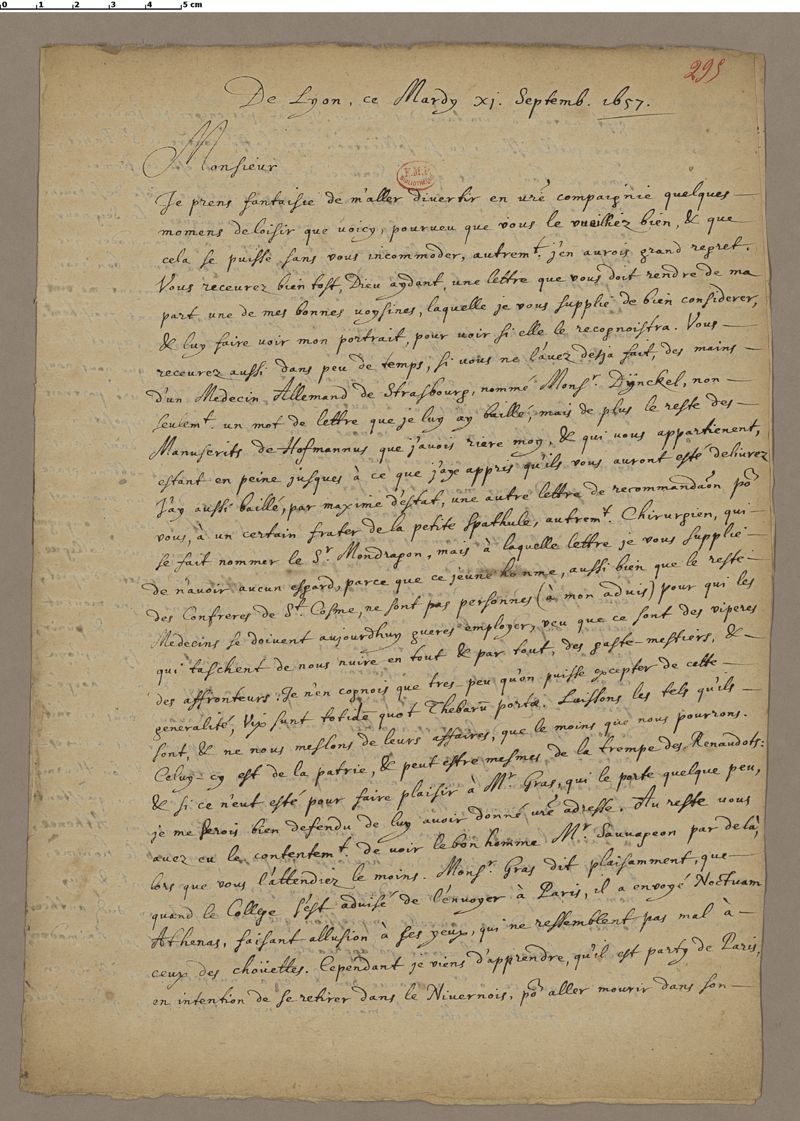 0 1 2 3 4 5 cm
295
De Lyon, ce Mardy xj. Septemb. 1657.
Monsieur
F.M.P.
BIBLIOTHÈQUE
Je prens fantaisie de m'aller divertir en vr̃e compaignie quelques —
momens de loisir que voicy, pourveu que vous le vueilhez bien, & que
cela se puisse sans vous incommoder, autremt. j'en aurois grand regret.
Vous recevrez bien tost, Dieu aydant, une lettre que vous doit rendre de ma
part une de mes bonnes voysines, laquelle je vous supplie de bien considerer,
& luy faire voir mon portrait, pour voir si elle le recognoistra. Vous —
recevrez aussi dans peu de temps, si vous ne l'avez desja fait, des mains —
d'un Medecin Allemand de Strasbourg, nommé Monsr. Dÿnckel, non —
seulemt. un mot de lettre que je luy ay baillé, mais de plus le reste des —
Manuscrits de Hofmannus que j'avois riere moy, & qui vous appartienent,
estant en peine jusques à ce que j'aye appris qu'ils vous auront esté delivrez
J'ay aussi baillé, par maxime d'estat, une autre lettre de recommandaõn põ
vous, à un certain frater de la petite spathule, autremt. Chirurgien, qui —
se fait nommer le Sr. Mondragon, mais à laquelle lettre je vous supplie —
de n'avoir aucun esgard, parce que ce jeune homme, aussi bien que le reste —
des Confreres de St. Cosme, ne sont pas personnes (à mon advis) pour qui les
Medecins se doivent aujourdhuy gueres employer, veu que ce sont des viperes
qui taschent de nous nuire en tout & par tout, des gaste-mestiers, & —
des affronteurs. Je n'en cognois que tres-peu qu'on puisse excepter de cette —
generalité, Vix sunt totidẽ quot Thebarũ portæ. Laissons les tels qu'ils —
sont, & ne nous meslons de leurs affaires, que le moins que nous pourrons.
Celuy-cy est de la patrie, & peut estre mesmes de la trempe des Renaudots:
& si ce n'eut esté pour faire plaisir à Mr. Gras, qui le porte quelque peu,
je me serois bien defendu de luy avoir donné vr̃e adresse. Au reste vous
avez eu le contentemt. de voir le bon homme Mr. Sauvageon par delà,
lors que vous l'attendiez le moins. Monsr. Gras dit plaisamment, que —
quand le College s'est advisé de l'envoyer à Paris, il a envoyé Noctuam
Athenas, faisant allusion à ses yeux, qui ne ressemblent pas mal à —
ceux des choüettes. Cependant je viens d'apprendre, qu'il est party de Paris,
en intention de se retirer dans le Nivernois, põ aller mourir dans son —